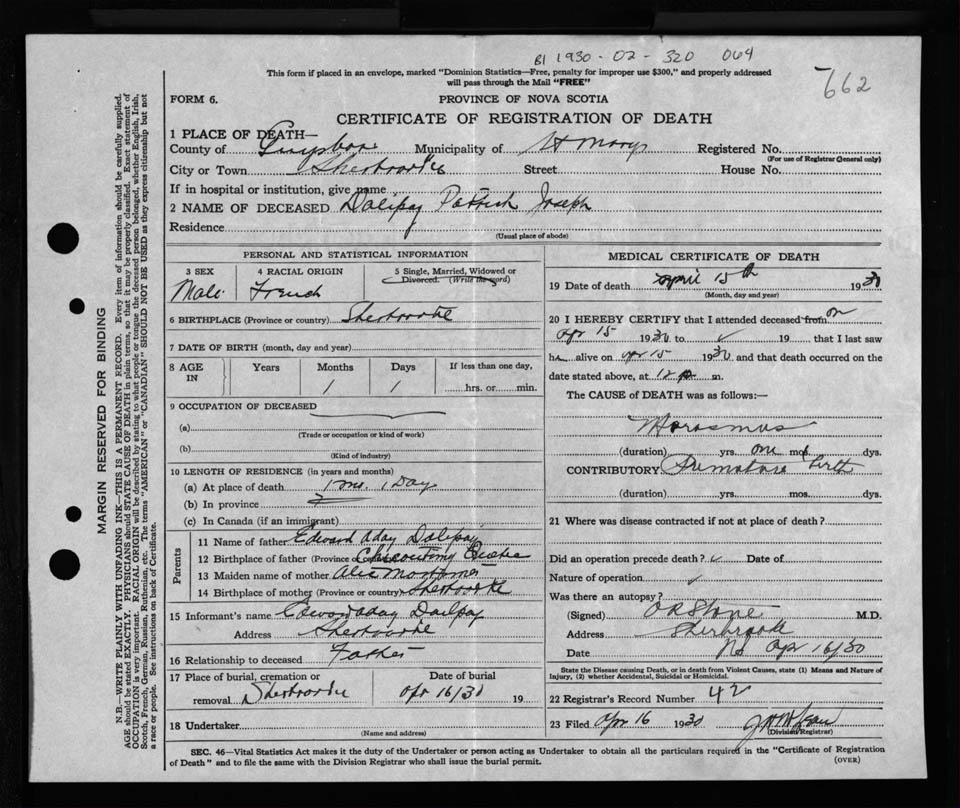 B1 1930 - 02 - 320 064
662
This form if placed in an envelope, marked "Dominion Statistics—Free, penalty for improper use $300," and properly addressed
will pass through the Mail "FREE"
FORM 6.
PROVINCE OF NOVA SCOTIA
CERTIFICATE OF REGISTRATION OF DEATH
1 PLACE OF DEATH—
County of Municipality of St Marys Registered No.
(For use of Registrar General only)
City or Town Street House No.
If in hospital or institution, give name
2 NAME OF DECEASED Patrick Joseph
Residence
(Usual place of abode)
PERSONAL AND STATISTICAL INFORMATION
3 SEX 4 RACIAL ORIGIN 5 Single, Married, Widowed or
Divorced. (Write the word)
Male French
6 BIRTHPLACE (Province or country)
7 DATE OF BIRTH (month, day and year)
8 AGE IN Years Months Days If less than one day,
1 1 hrs. or min.
9 OCCUPATION OF DECEASED
(a)
(Trade or occupation or kind of work)
(b)
(Kind of industry)
10 LENGTH OF RESIDENCE (in years and months)
(a) At place of death 1 mo. 1 Day
(b) In province
(c) In Canada (if an immigrant)
Parents
11 Name of father Edward
12 Birthplace of father (Province or country)
13 Maiden name of mother
14 Birthplace of mother (Province or country)
15 Informant's name
Address
16 Relationship to deceased Father
17 Place of burial, cremation or Date of burial
removal Apr 16/30 19
18 Undertaker
(Name and address)
MEDICAL CERTIFICATE OF DEATH
19 Date of death April 15th 1930
(Month, day and year)
20 I HEREBY CERTIFY that I attended deceased from on
Apr 15 1930 to 19 that I last saw
h alive on Apr 15 1930 and that death occurred on the
date stated above, at 12 m.
The CAUSE of DEATH was as follows:—
Marasmus
(duration) yrs. one mos. dys.
CONTRIBUTORY Premature birth
(duration) yrs. mos. dys.
21 Where was disease contracted if not at place of death?
Did an operation precede death? Date of
Nature of operation
Was there an autopsy?
(Signed) M.D.
Address Sherbrooke
Date NS Apr 16/30
State the Disease causing Death, or in death from Violent Causes, state (1) Means and Nature of
Injury, (2) whether Accidental, Suicidal or Homicidal.
22 Registrar's Record Number 42
23 Filed Apr 16 1930
(Division Registrar)
SEC. 46—Vital Statistics Act makes it the duty of the Undertaker or person acting as Undertaker to obtain all the particulars required in the "Certificate of Registration
of Death" and to file the same with the Division Registrar who shall issue the burial permit.
(OVER)
MARGIN RESERVED FOR BINDING
N.B.—WRITE PLAINLY WITH UNFADING INK—THIS IS A PERMANENT RECORD. Every item of information should be carefully supplied.
AGE should be stated EXACTLY. PHYSICIANS should STATE CAUSE OF DEATH in plain terms, so that it may be properly classified. Exact statement of
OCCUPATION is very important. RACIAL ORIGIN will be described by stating to what people or tongue the deceased person belonged, whether English, Irish,
Scotch, French, German, Russian, Ruthenian, etc. The terms "AMERICAN" or "CANADIAN" SHOULD NOT BE USED as they express citizenship but not
a race or people. See instructions on back of Certificate.